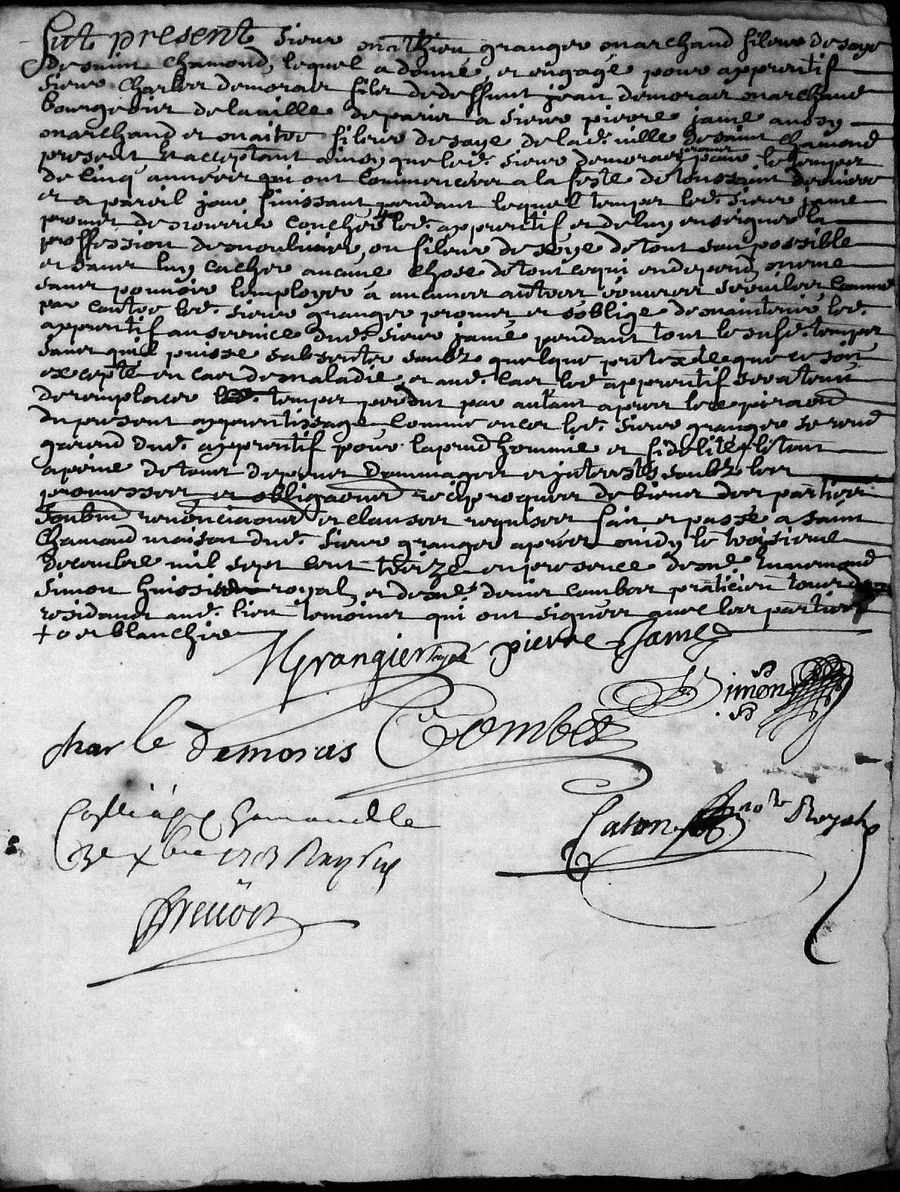 Fut présent Sieur Mathieu granger marchand fileur de soye
de Saint Chamond, lequel a donné, et engagé pour apprentif
Sieur Charles demoras filz de deffunt jean demoras marchand
bourgeois de la ville de paris a Sieur pierre jamé aussy
marchand et maitre fileur de soye de lad. ville de Saint Chamond
present et acceptant ainsy que led. Sieur demoras pour le temps
de cinq années qui ont commencées a la feste de toussaint derniere
et a pareil jour finissant pendant lequel temps led. Sieur jamé
promet de nourrir coucher led. apprentif et de luy enseigner la
proffession de moulinier, ou fileur de soye de tout son possible
et sans luy cacher aucune chose de tout ce qui en depend, mesme
sans pouvoir l'employer à aucunes autres comme
par contre led. Sieur granger promet et s'oblige de maintenir led.
apprentif au service dud. Sieur jamé pendant tout le susd. temps
sans qu'il puisse s'absenter soubz quelque pretexte que ce soit
excepté en cas de maladie, et aud. cas led. apprentif sera tenu
de remplacer led. temps perdut par autant apres lexpiraon
du present apprentissage, comme encor led. Sieur granger se rend
garend dud. apprentif pour la prud hommie et fidelité le tout
a peine de tous depens dommages et interests soubz les
promesses et obligaons reciproques de biens des parties
Soubm renonciaons et clauses requises fait et passé a Saint
Chamond maison dud. Sieur granger apres midy le troisieme
decembre mil sept cent treize en presence de
Simon huissier royal, et de denis combes praticien tous deux
residants aud. lieu temoins qui ont signées avec les parties
+ o et blanchir
MGrangier pierre Jamé
Simon
charle demoras Combes
Chamond le
3e xbre 1713
Caton nore Royal